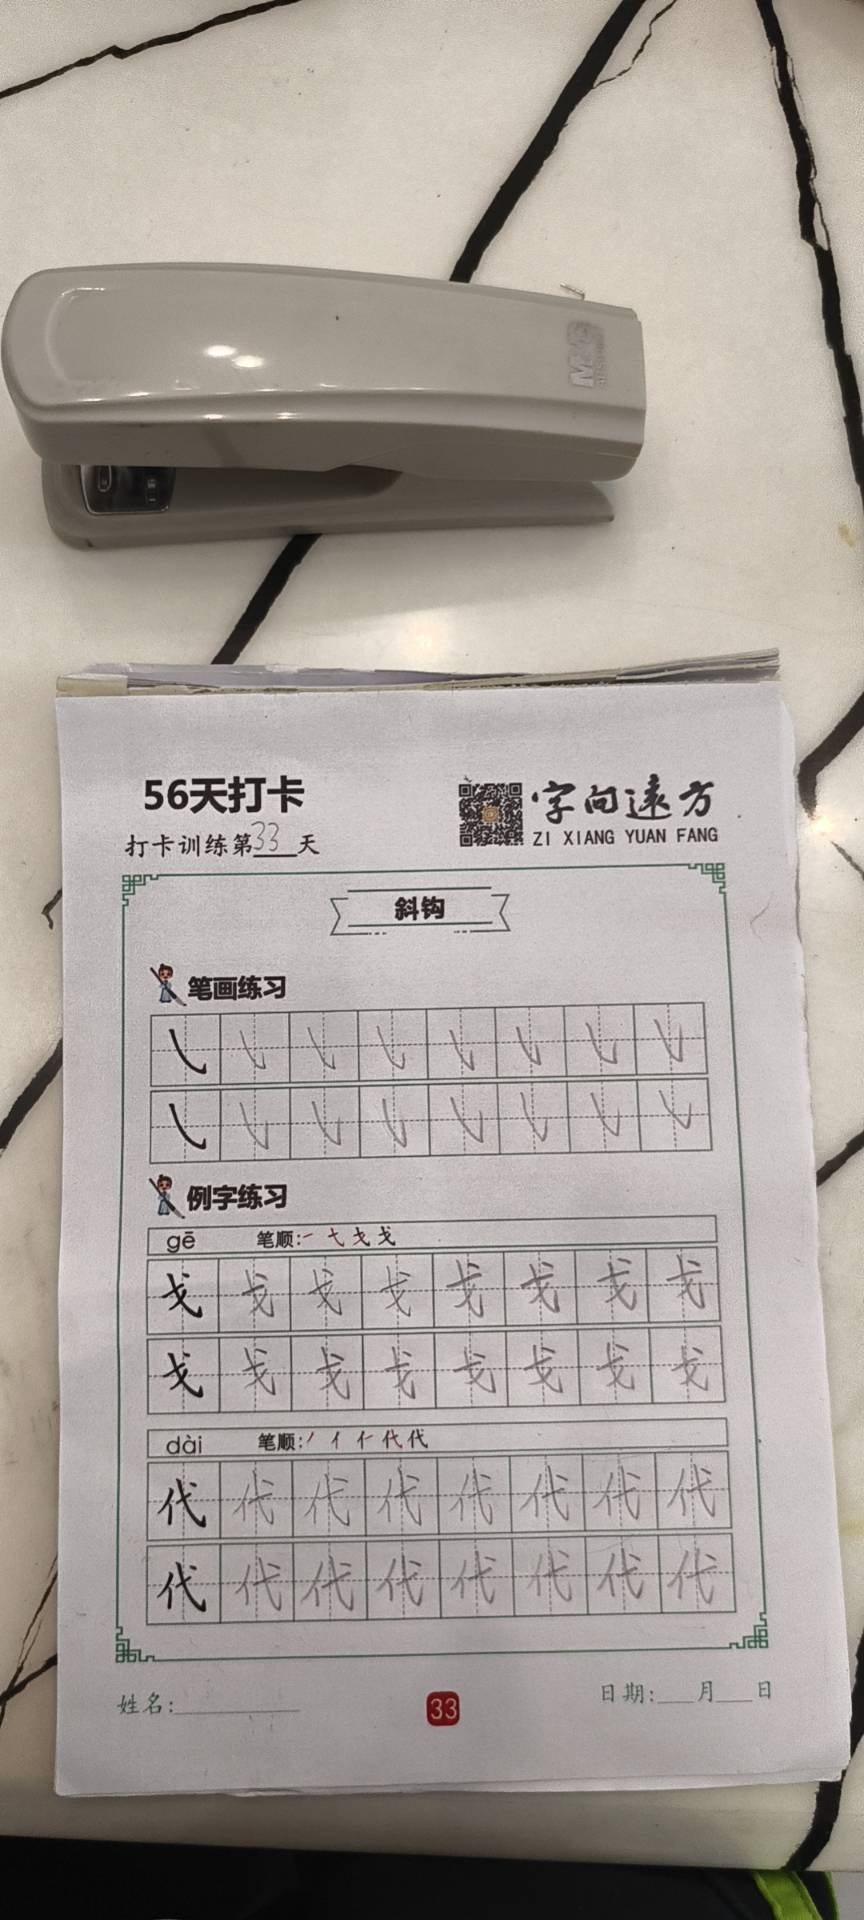 M&G
56天打卡
字向远方
打卡训练第33天
ZI XIANG YUAN FANG
斜钩
笔画练习
㇂ ㇂ ㇂ ㇂ ㇂ ㇂ ㇂ ㇂
㇂ ㇂ ㇂ ㇂ ㇂ ㇂ ㇂ ㇂
例字练习
gē 笔顺:一 弋 戈 戈
戈 戈 戈 戈 戈 戈 戈 戈
戈 戈 戈 戈 戈 戈 戈 戈
dài 笔顺:丿 亻 仁 代 代
代 代 代 代 代 代 代 代
代 代 代 代 代 代 代 代
姓名:
33
日期:___月___日